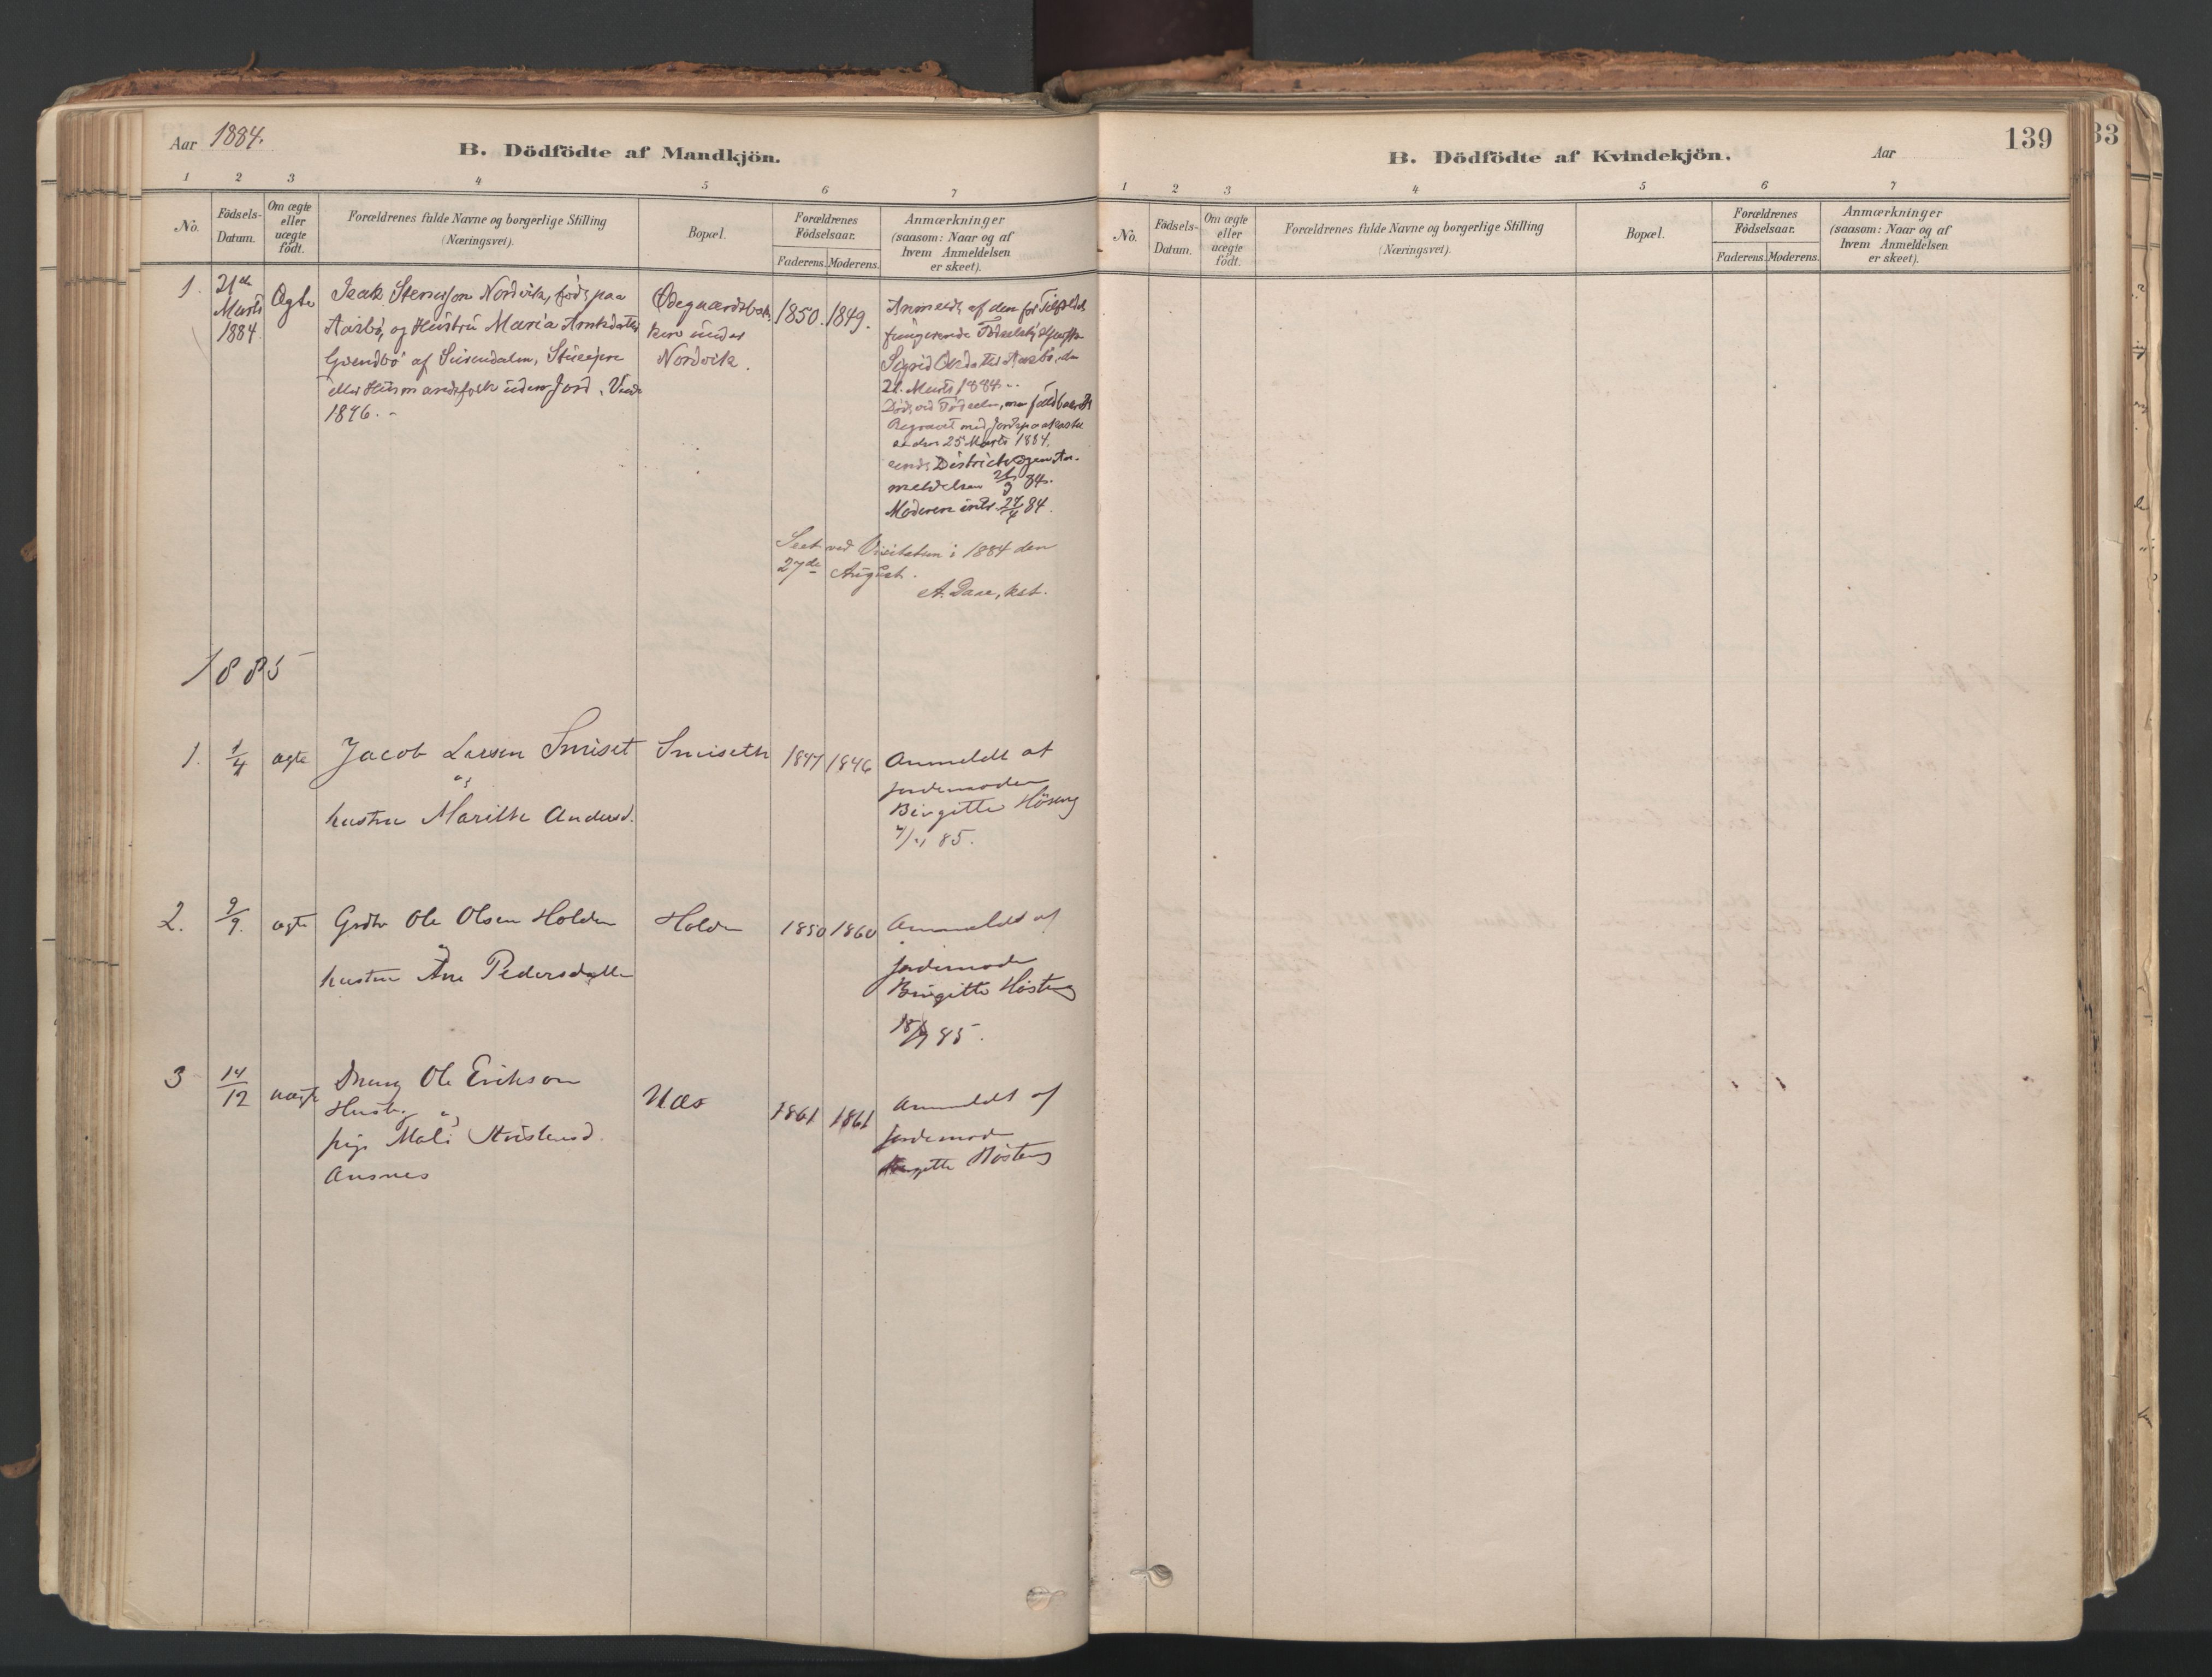 Aar 1884.
B. Dödfödte af Mandkjön.
1 2 3 4 5 6 7
No.
Födsels-
Datum.
Om ægte
eller
uægte
födt.
Forældrenes fulde Navne og borgerlige Stilling
(Næringsvei).
Bopæl.
Forældrenes
Födselsaar.
Faderens. Moderens.
Anmærkninger
(saasom: Naar og af
hvem Anmeldelsen
er skeet).
1.
21de
Marts
1884
Ægte
Isak Nordvik, föd paa
Aasbö, og Hustru Maria
af Surendalen,
eller Husmandsfolk uden Jord.
1846.
under
Nordvik.
1850. 1849.
Anmeldt af den
fungerende
Sigrid Aasbö, den
21. Marts 1884.
Död ved Födselen, men fuldbaaren
Begravet med Jordspaakastelse
den 25 Marts 1884.
meldelsen 84.
Moderen 27/4 84.
Seet ved Visitatsen i 1884 den
27de August.
A. Daae, kst.
1885
1.
1/4
ægte
Jacob Larsen Smiset
og
hustru Marithe Andersd.
Smiseth
1847 1846
Anmeldt af
jordemoder
Birgitte Höseng
85.
2.
9/9.
ægte
Grdbr Ole Olsen Holden
og
hustru Ane Pedersdatter
Holden
1850 1860
Anmeldt af
jordemoder
Birgitte Höseng
18/9 85.
3
14/12
uægte
Dreng Ole Erikson
og
pige Mali
Ansnes
Næs
1861 1861
Anmeldt af
jordemoder
Birgitte Höseng
B. Dödfödte af Kvindekjön.
Aar
139
33
1 2 3 4 5 6 7
No.
Födsels-
Datum.
Om ægte
eller
uægte
födt.
Forældrenes fulde Navne og borgerlige Stilling
(Næringsvei).
Bopæl.
Forældrenes
Födselsaar.
Faderens. Moderens.
Anmærkninger
(saasom: Naar og af
hvem Anmeldelsen
er skeet).